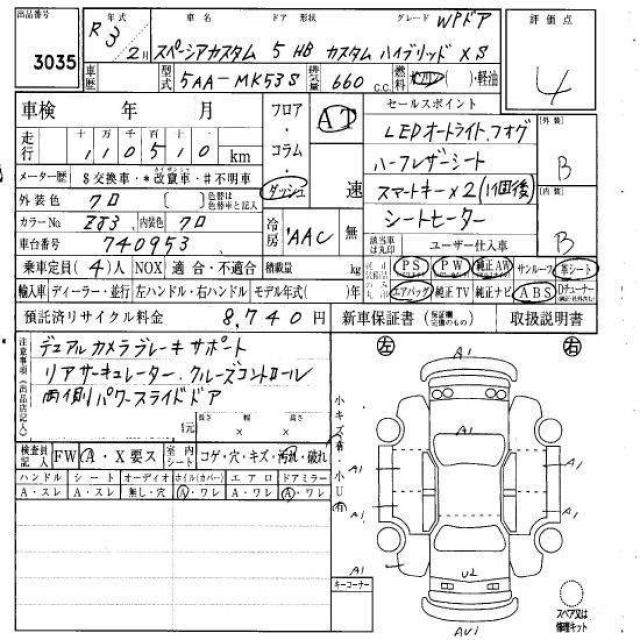 出品番号 3035
年式 R3 2月
車名 スペーシアカスタム
ドア 形状 5 HB
グレード WPドア カスタム ハイブリッド XS
評価点 4
車歴
型式 5AA-MK53S
排気量 660 c.c.
燃料 ガソリン( )・軽油
車検 年 月
走行 十万千百十 110510 km
メーター歴 $交換車・*改竄車・#不明車
外装色 クロ [ ] 色替は色替車と記入
カラーNo. ZJ3 内装色 クロ
車台番号 740953
フロア・コラム・ダッシュ
AT 速
冷房 AAC 無
セールスポイント
LEDオートライト、フォグ
ハーフレザーシート
スマートキー×2(1個後)
シートヒーター
該当車は丸印 ユーザー仕入車
[外装] B
[内装] B
乗車定員(4)人 NOX 適合・不適合 積載量 kg
PS PW 純正AW サンルーフ 革シート
輸入車 ディーラー・並行 左ハンドル・右ハンドル モデル年式( )年
エアバッグ 純正TV 純正ナビ ABS Dチューナー
預託済リサイクル料金 8,740円
新車保証書 取扱説明書
注意事項(出品店記入)
デュアルカメラブレーキサポート
リアサーキュレーター、クルーズコントロール
両側パワースライドドア
長さ 幅 高さ
元 × ×
検査員記入 FW A・X要ス 室内シート コゲ・穴・キズ・汚れ・破れ
ハンドル シート オーディオ ホイル(カバー) エアロ ドアミラー
A・スレ A・スレ 無し・穴 A・ワレ A・ワレ A・ワレ
小キズ有 小U有
左 右
A1
A1
A1 A1
A1 A1
A1
U2
AU1
キーコーナー
スペア又は修理キット